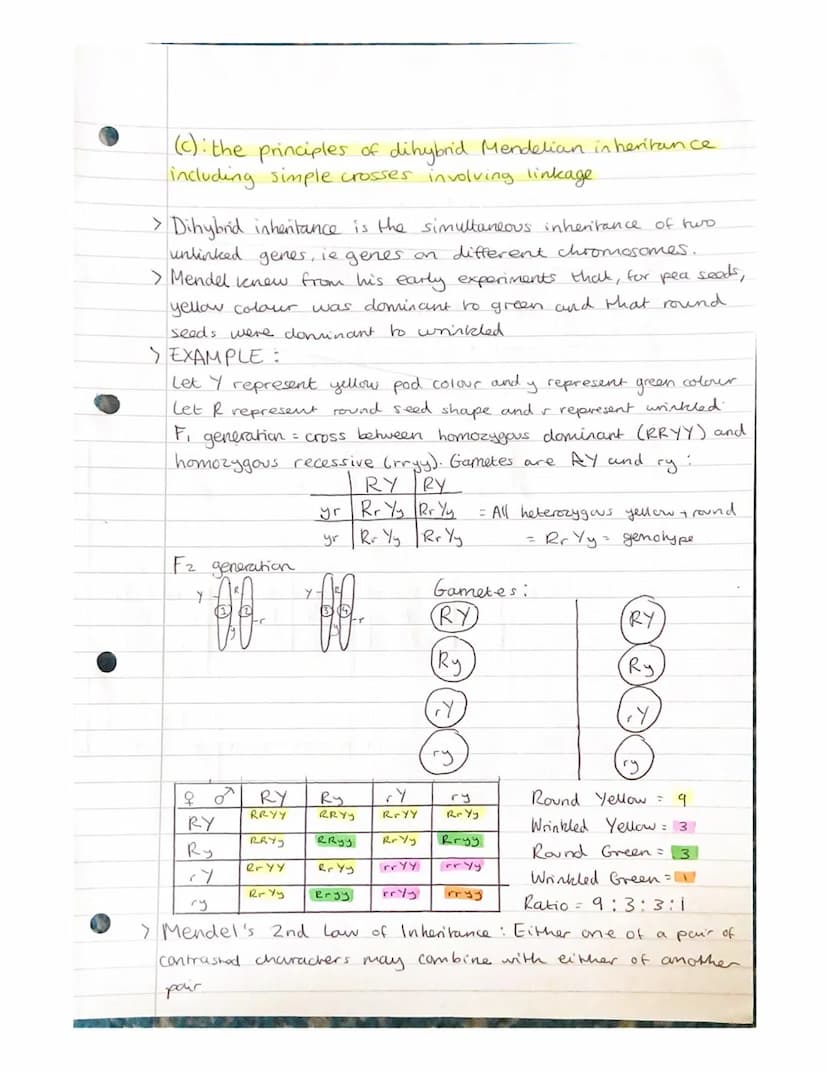 (c): the principles of dihybrid Mendelian inheritance
including simple crosses involving linkage
> Dihybrid inheritance is the simultaneous inheritance of two
unlinked genes, ie genes on different chromosomes.
> Mendel knew from his early experiments that, for pea seeds,
yellow colour was dominant to green and that round
seeds were dominant to wrinkled
> EXAMPLE :
Let Y represent yellow pod colour and y represent green colour
Let R represent round seed shape and r represent wrinkled.
F1 generation = cross between homozygous dominant (RRYY) and
homozygous recessive (rryy). Gametes are RY and ry :
RY RY
yr RrYy RrYy = All heterozygous yellow + round
yr RrYy RrYy = RrYy = genotype
F2 generation
Gametes :
Y R 1 2 y r
Y R 3 4 y r
RY RY
Ry Ry
rY rY
ry ry
♀ ♂ RY Ry rY ry
RY RRYY RRYy RrYY RrYy
Ry RRYy RRyy RrYy Rryy
rY RrYY RrYy rrYY rrYy
ry RrYy Rryy rrYy rryy
Round Yellow = 9
Wrinkled Yellow = 3
Round Green = 3
Wrinkled Green = 1
Ratio = 9 : 3 : 3 : 1
> Mendel's 2nd Law of Inheritance : Either one of a pair of
contrasted characters may combine with either of another
pair